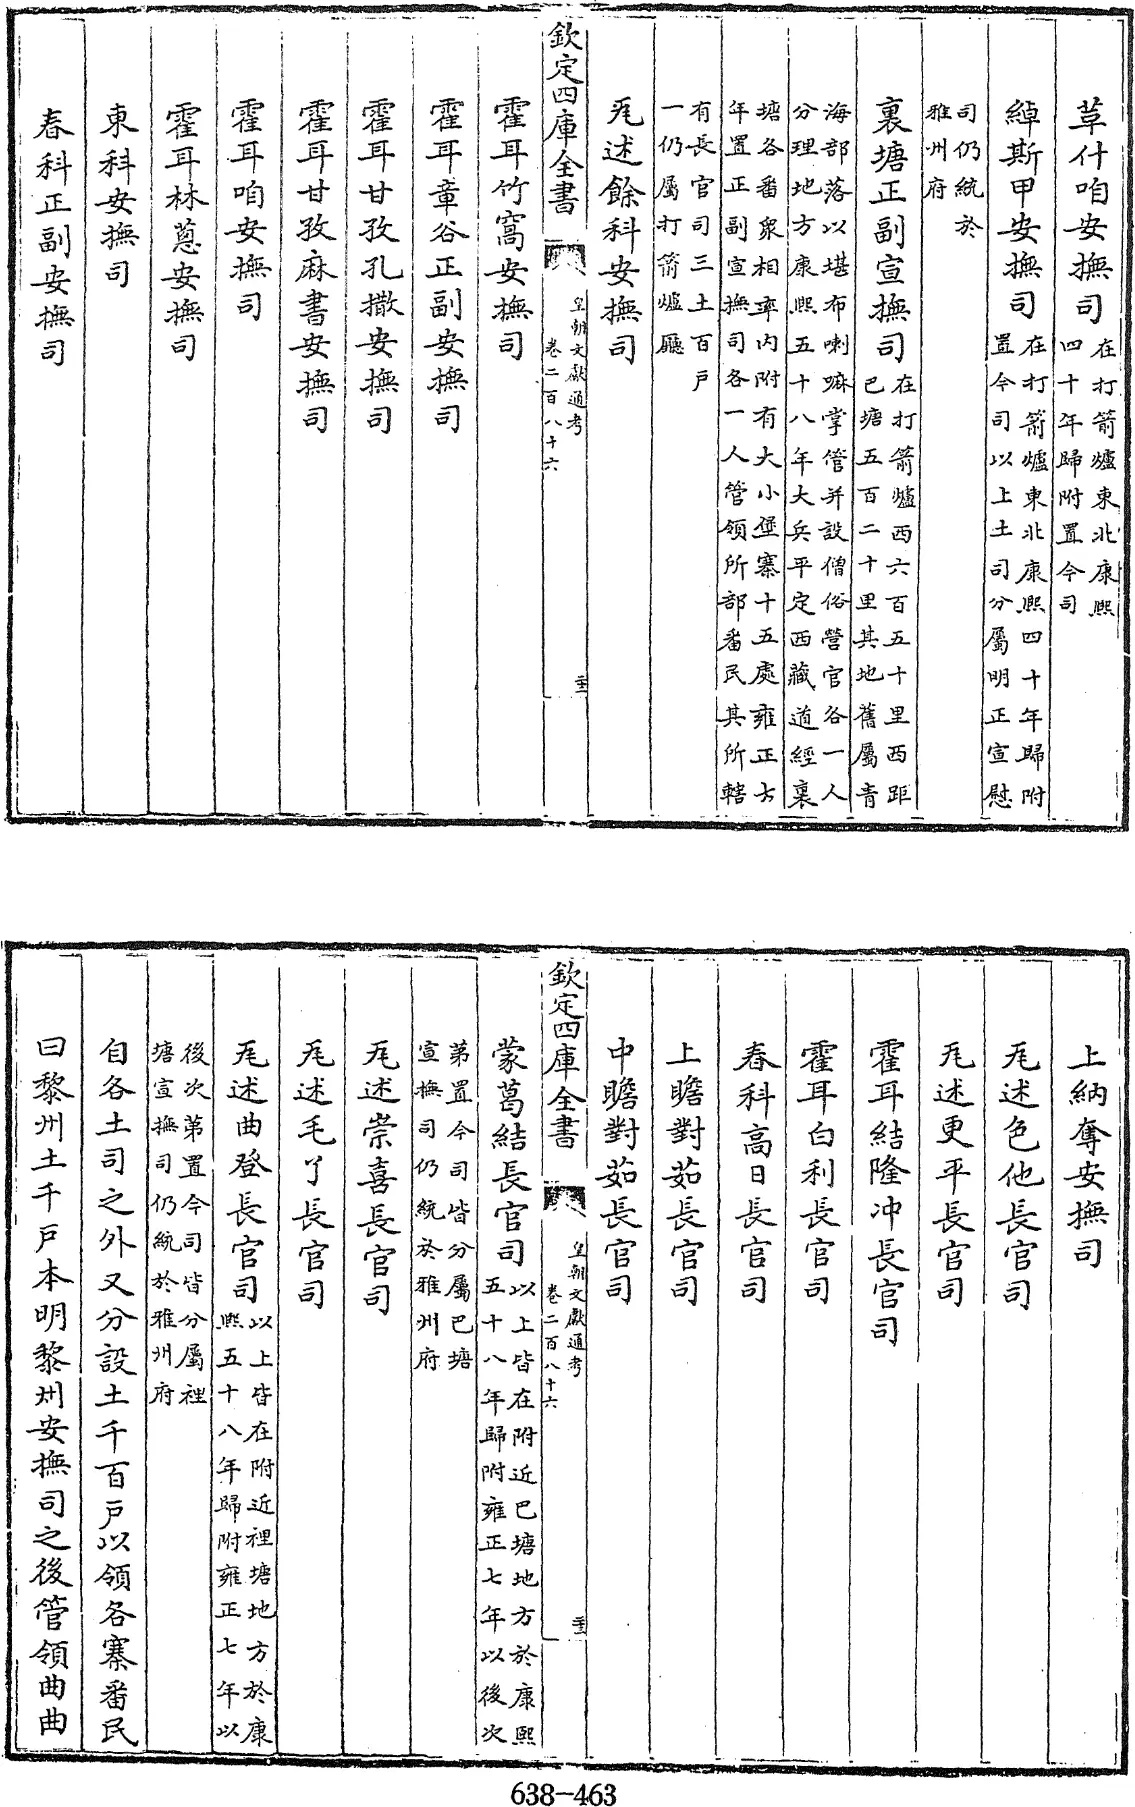 草什咱安撫司
在打箭爐東北康熙
四十年歸附置今司
綽斯甲安撫司
在打箭爐東北康熙四十年歸附
置今司以上土司分屬明正宣慰
司仍統於
雅州府
裏塘正副宣撫司
在打箭爐西六百五十里西距
巴塘五百二十里其地舊屬青
海部落以堪布喇嘛掌管并設僧俗營官各一人
分理地方康熙五十八年大兵平定西藏道經裏
塘各番衆相率内附有大小堡寨十五處雍正七
年置正副宣撫司各一人管領所部番民其所轄
有長官司三土百戶
一仍屬打箭爐廳
瓦述餘科安撫司
欽定四庫全書
皇朝文獻通考
卷二百八十六
霍耳竹窩安撫司
霍耳章谷正副安撫司
霍耳甘孜孔撒安撫司
霍耳甘孜麻書安撫司
霍耳咱安撫司
霍耳林蔥安撫司
東科安撫司
春科正副安撫司
上納奪安撫司
瓦述色他長官司
瓦述更平長官司
霍耳結隆冲長官司
霍耳白利長官司
春科高日長官司
上瞻對茹長官司
中瞻對茹長官司
欽定四庫全書
皇朝文獻通考
卷二百八十六
蒙葛結長官司
以上皆在附近巴塘地方於康熙
五十八年歸附雍正七年以後次
第置今司皆分屬巴塘
宣撫司仍統於雅州府
瓦述崇喜長官司
瓦述毛丫長官司
瓦述曲登長官司
以上皆在附近裡塘地方於康
熙五十八年歸附雍正七年以
後次第置今司皆分屬裡
塘宣撫司仍統於雅州府
自各土司之外又分設土千百戶以領各寨番民
曰黎州土千戶本明黎州安撫司之後管領曲曲
638-463